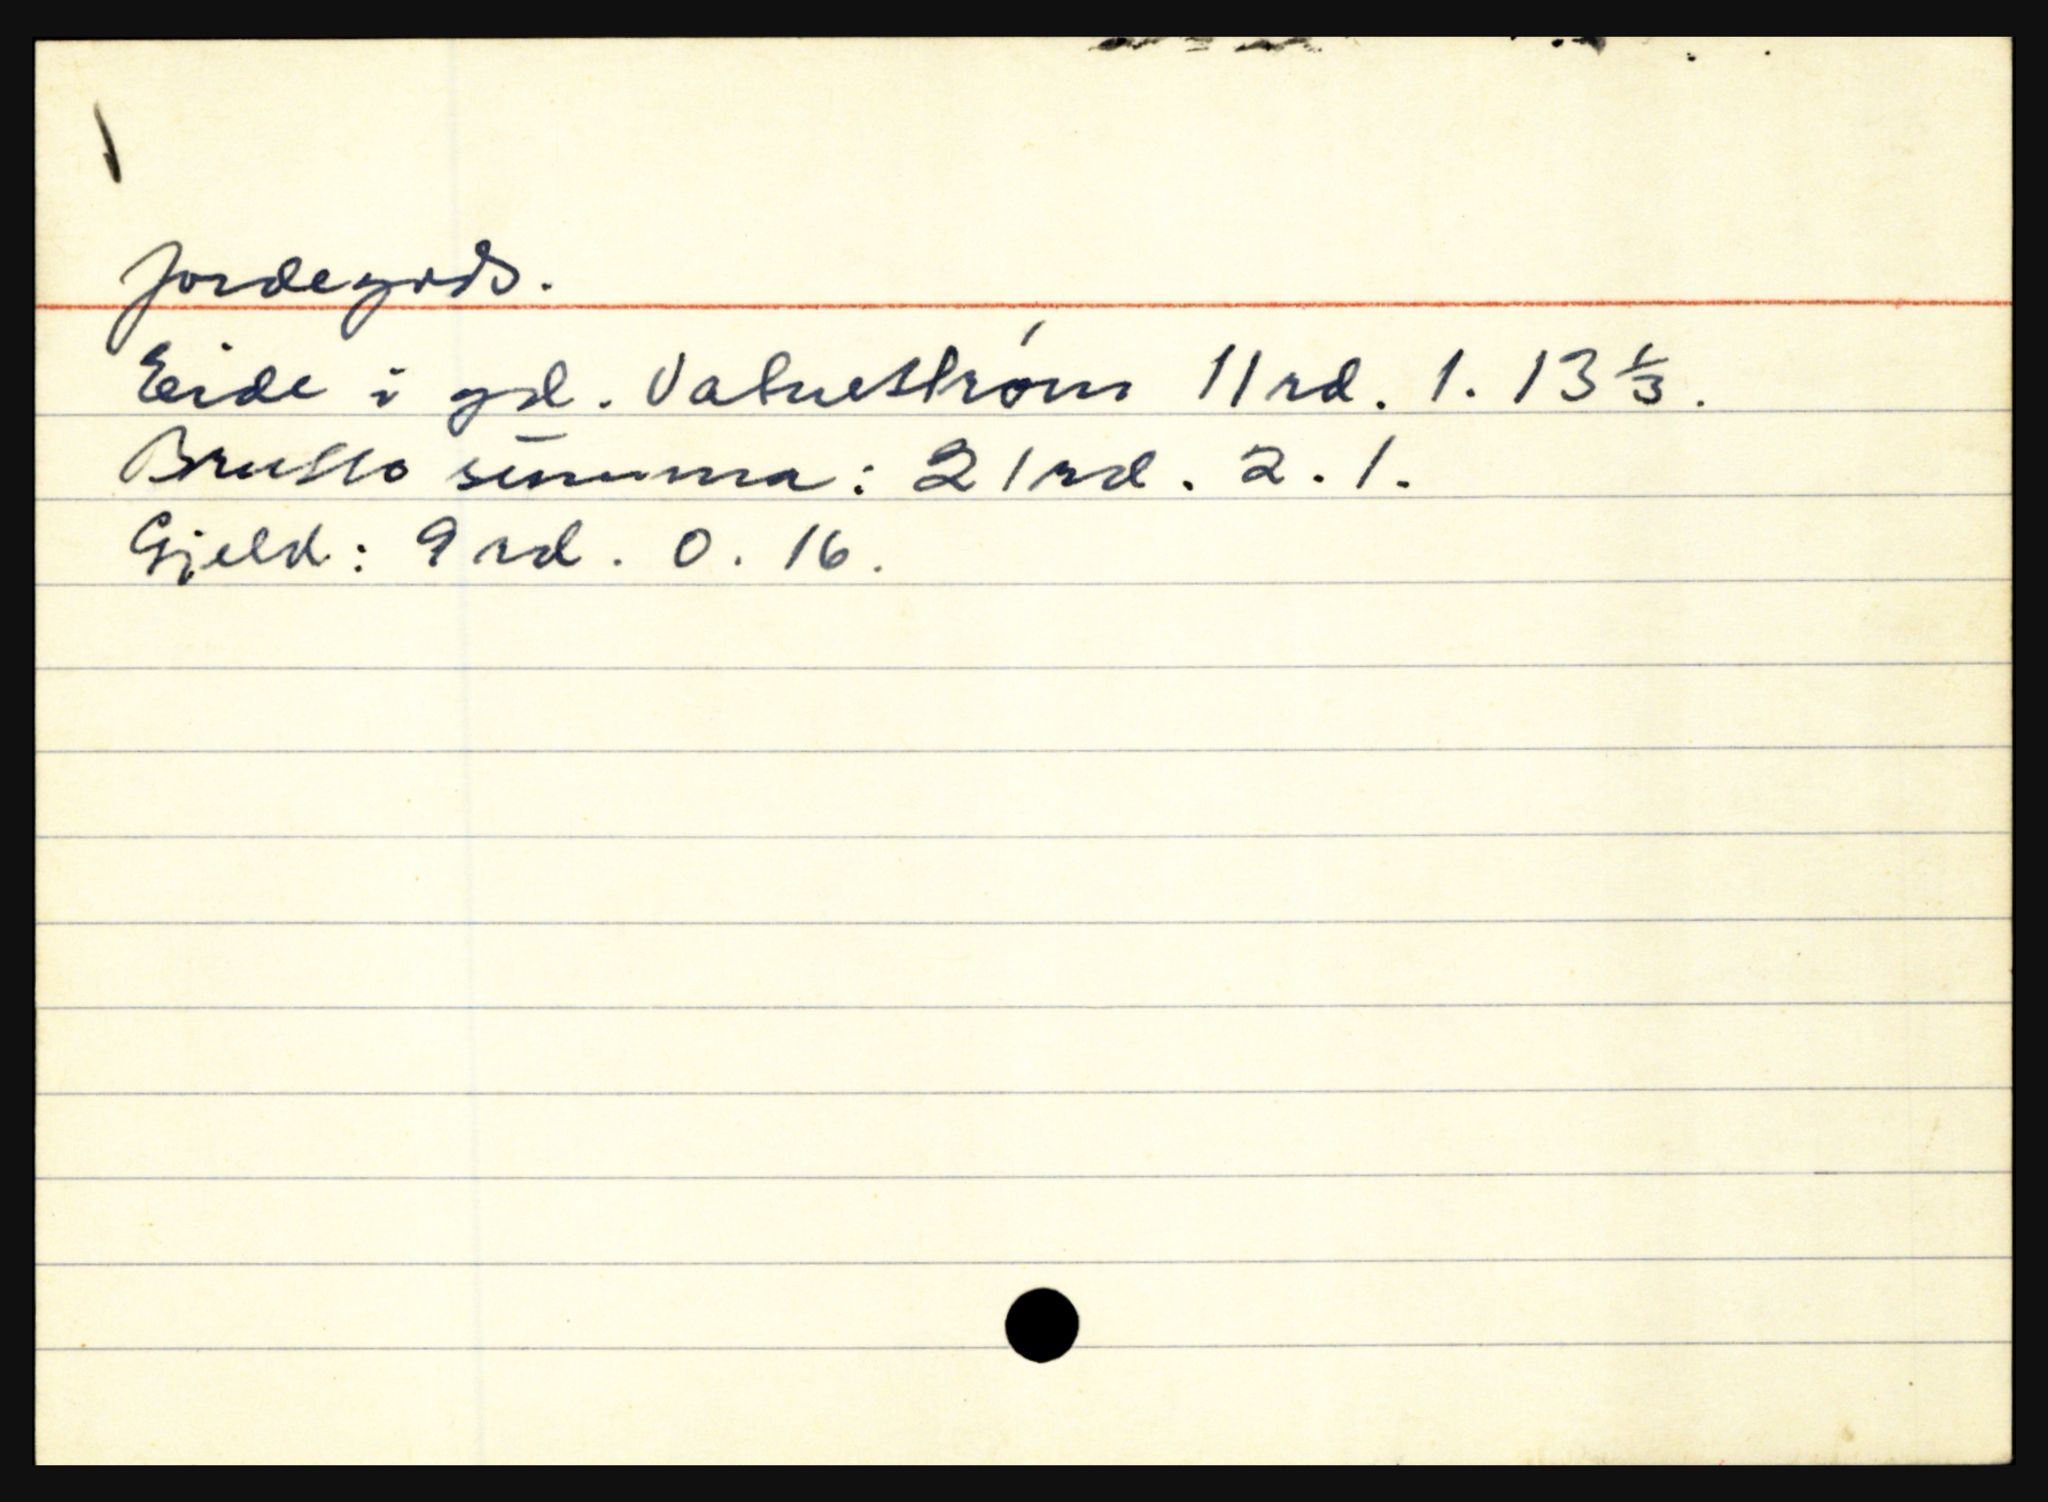 Jordegods.
Eide i gd. Valnestrøm 11 rd. 1. 13 1/3.
Brutto summa: 21 rd. 2. 1.
Gjeld: 9 rd. 0. 16.